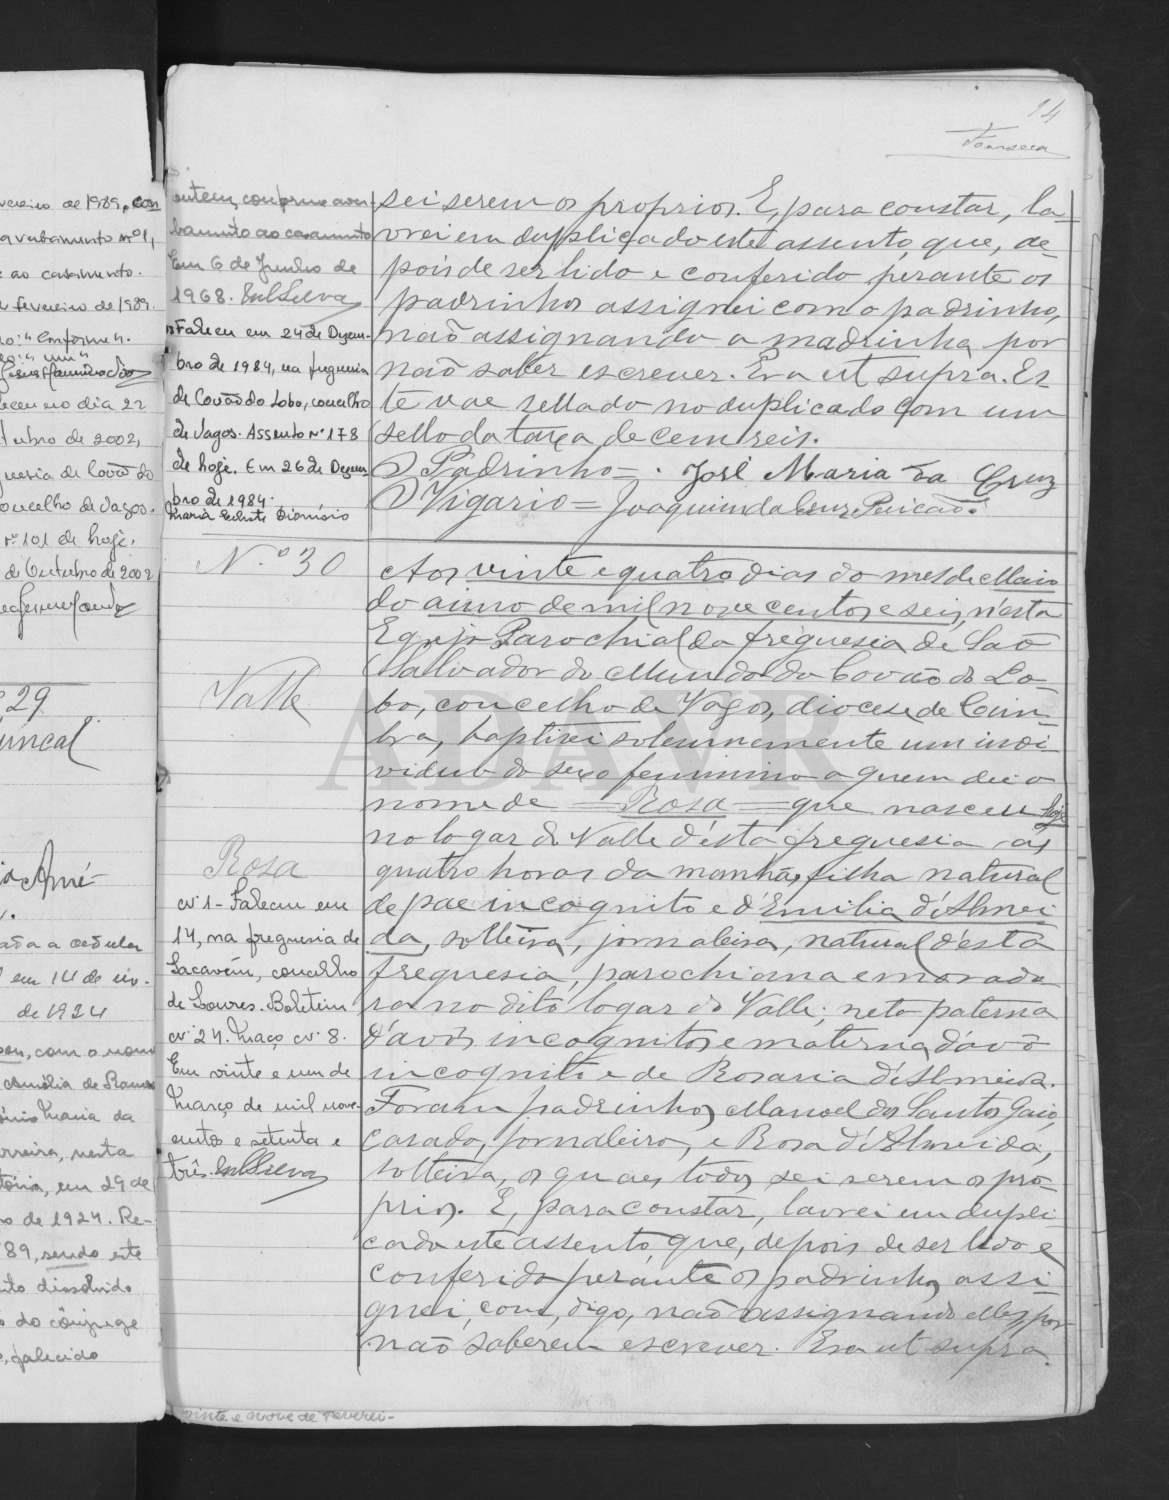 14
Fonseca
vereiro de 1989, con
averbamento nº 1,
ao casamento.
fevereiro de 1989.
"Conforme".
"um"
faleceu no dia 22
tubro de 2002,
guesia de Covão do
concelho de Vagos.
nº 101 de hoje.
de Outubro de 2002
29
uncal
de 1924
em 14 de
com o nome
Amélia de Ramos
Maria da
nesta
em 29 de
de 1924. Re-
89, sendo este
dissolvido
do cônjuge
falecido
ontem, conforme aver-
bamento ao casamento
Em 6 de Junho de
1968.
Faleceu em 24 de Dezem-
bro de 1984, na freguesia
de Covão do Lobo, concelho
de Vagos. Assento nº 178
de hoje. Em 26 de Dezem
bro de 1984.
Maria Dionísio
sei serem os proprios. E, para constar, la-
vrei em duplicado este assento, que, de-
pois de ser lido e conferido perante os
padrinhos assignei com o padrinho,
não assignando a madrinha por
não saber escrever. Era ut supra. Es-
te vae sellado no duplicado com um
sello da taxa de cem reis.
O Padrinho = José Maria da Cruz
O Vigario = Joaquim da Cruz
N.º 30
Valle
Rosa
nº 1 - Faleceu em
14, na freguesia de
Sacavém, concelho
de Loures. Boletim
nº 24. Maço nº 8.
Em vinte e um de
Março de mil nove-
centos e setenta e
três.
Aos vinte e quatro dias do mes de Maio
do anno de mil nove centos e seis, n'esta
Egreja Parochial da freguesia de São
Salvador do Mundo do Covão do Lo-
bo, concelho de Vagos, diocese de Coim-
bra, baptisei solemnemente um indi-
viduo do sexo feminino a quem dei o
nome de = Rosa = que nasceu hoje
no logar do Valle d'esta freguesia ás
quatro horas da manhã, filha natural
de pae incognito e d'Emilia d'Almei-
da, solteira, jornaleira, natural d'esta
freguesia, parochiana e morado-
ra no dito logar do Valle; neta paterna
d'avós incognitos e materna d'avô
incognito e de Rosaria d'Almeida.
Foram padrinhos, Manoel dos Santos Gaio,
casado, jornaleiro, e Rosa d'Almeida,
solteira, os quaes todos sei serem os pro-
prios. E, para constar, lavrei em dupli-
cado este assento, que, depois de ser lido e
conferido perante os padrinhos assi-
gnei, com, digo, não assignando elles por
não saberem escrever. Era ut supra.
vinte e nove de Feverei-
ADAVR